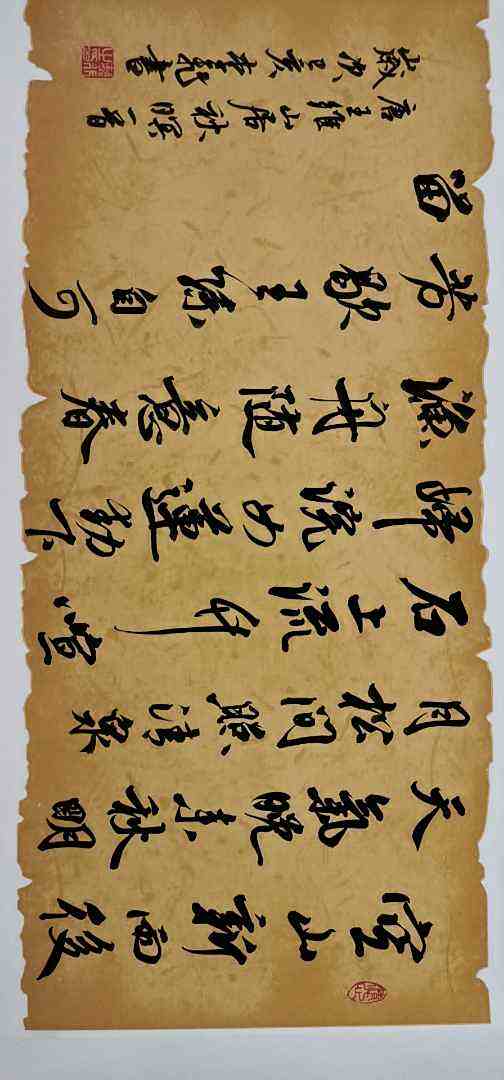 空山新雨後
天氣晚来秋明
月松间照清泉
石上流竹喧
歸浣女蓮動下
漁舟随意春
芳歇王孫自可
留
唐王維山居秋暝一首
歲次己亥李書